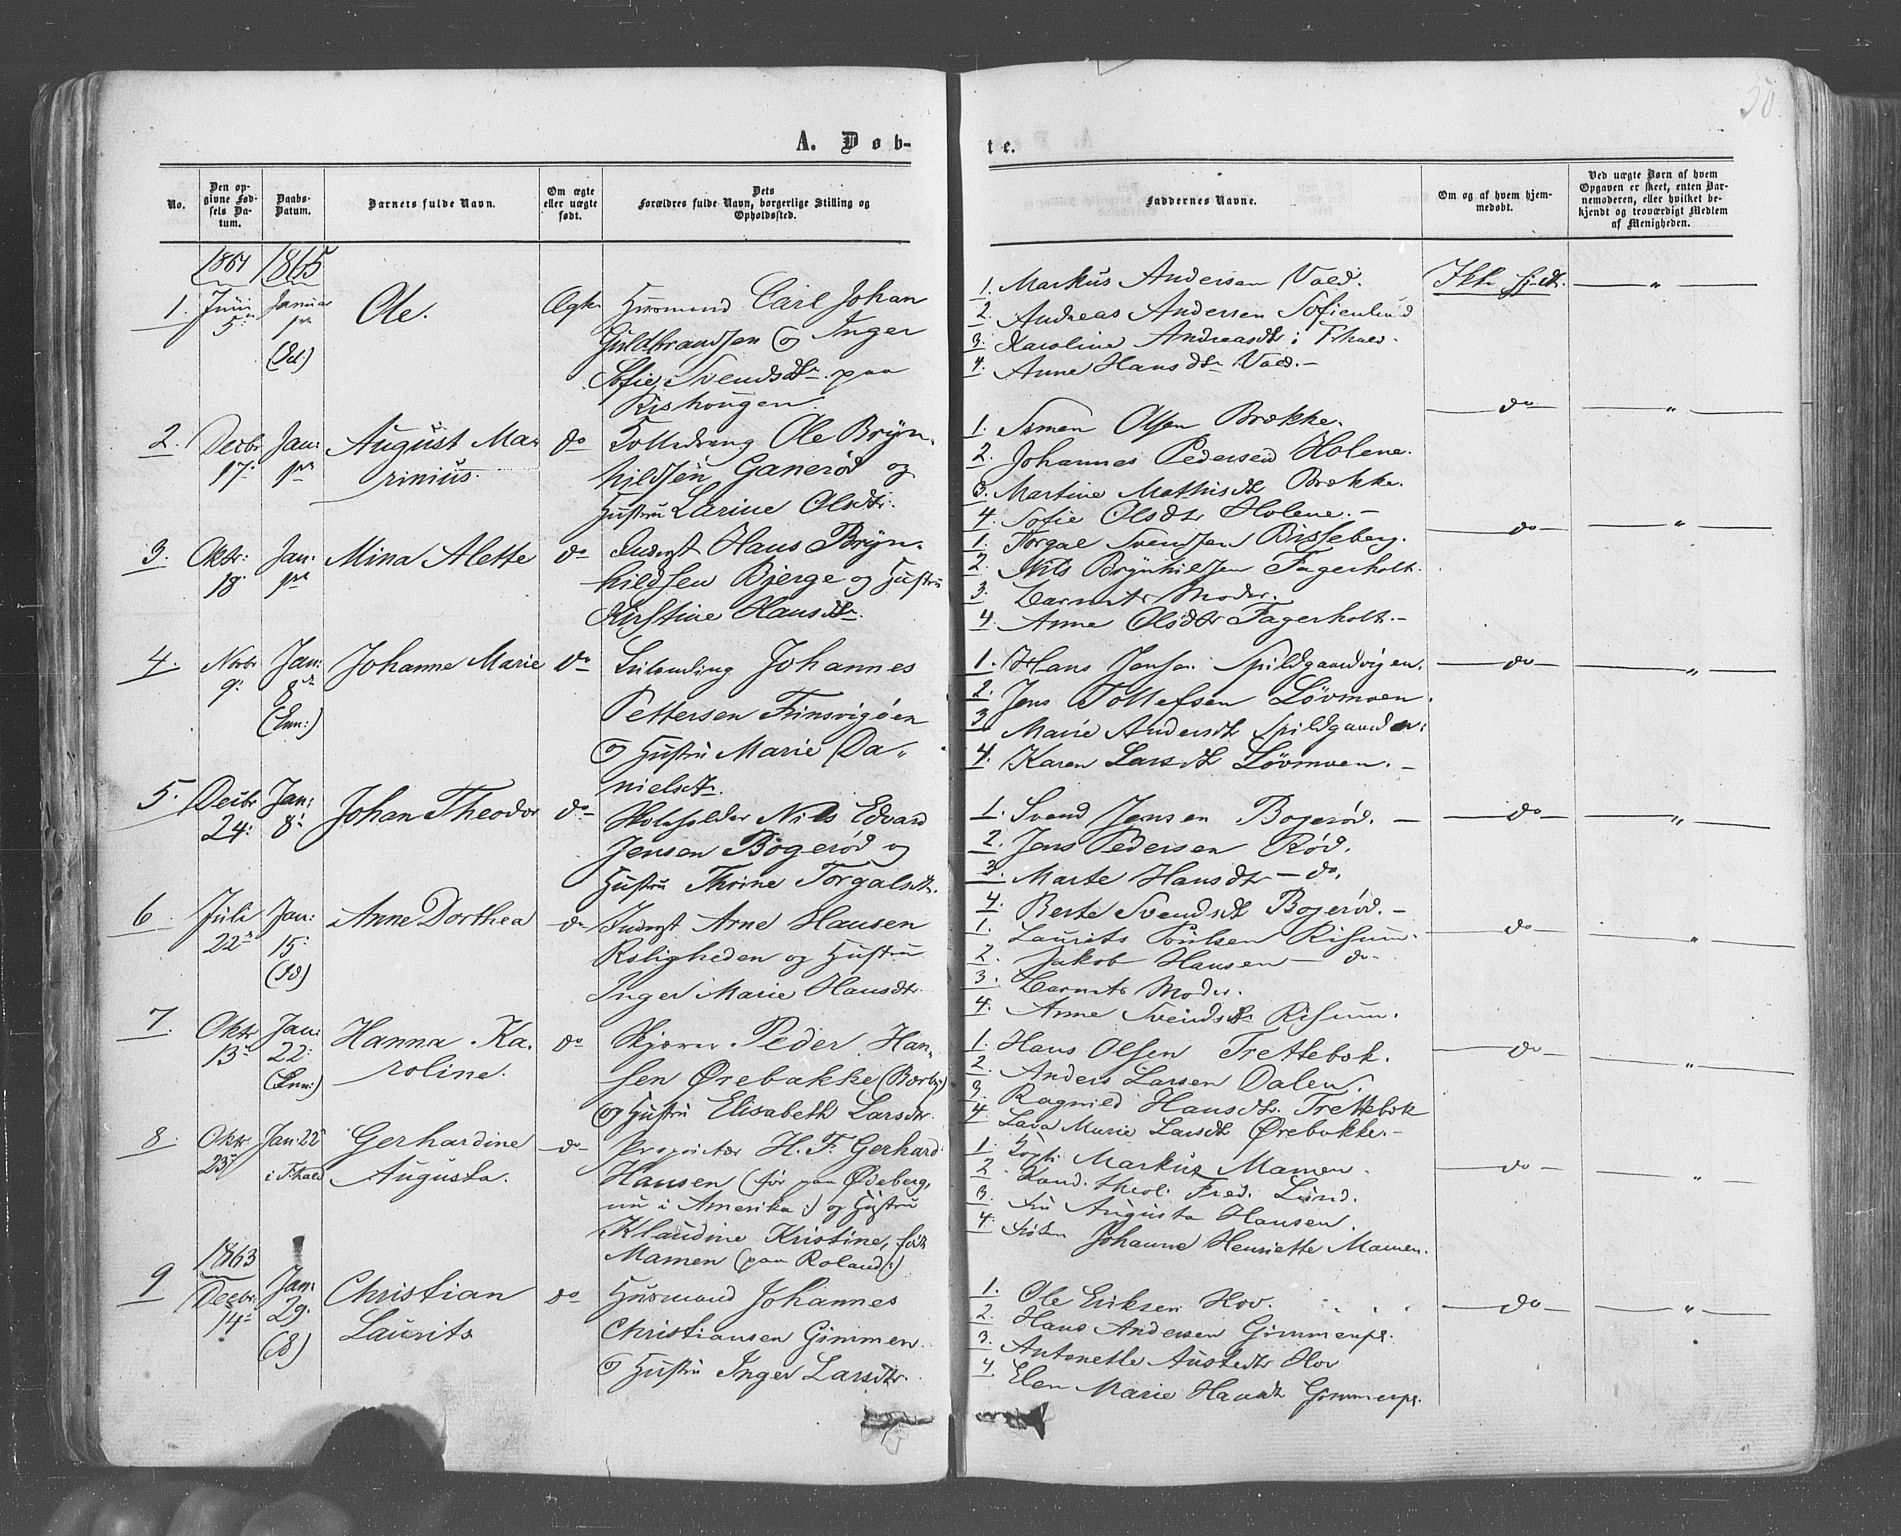 50.
A. Døb-
te.
No.
Den op-
givne Fød-
sels Da-
tum.
Daabs-
Datum.
Barnets fulde Navn.
Om ægte
eller uægte
født.
Dets
Forældres fulde Navn, borgerlige Stilling og
Opholdssted.
Faddernes Navne.
Om og af hvem hjem-
medøbt.
Ved uægte Børn af hvem
Opgaven er skeet, enten Bar-
nemoderen, eller hvilket be-
kjendt og troværdigt Medlem
af Menigheden.
1864 1865
1. Juni 5. Januar (Id) Ole. Ægte
Husmand Carl Johan
Guldbrandsen og Inger
Sofie Svendsdtr. paa
Rishougen.
1. Markus Andersen Vold.
2. Andreas Andersen Sofienlund
3. Karoline Andreasdtr i Frhald.
4. Anne Hansdtr Vold.-
Ikke hjdt. "
2. Decbr 17. Jan: August Ma-
rinius. do
Ole Bryn-
hildsen Ganerød og
Hustru Larine Olsdtr.
1. Simen Olsen Brække.
2. Johannes Pedersen Holene.
3. Martine Mathisdtr Brække.
4. Sofie Olsdtr Holene.-
do "
3. Oktr: 18. Jan: Mina Alette do
Inderst Hans Bryn-
hildsen Bjerge og Hustru
Kirstine Hansdtr.
1. Torgal Svendsen Risseberg.
2. Nils Brynhildsen Fagerholt.
3. Barnets Moder.
4. Anne Olsdtr Fagerholt.-
do "
4. Novbr 9. Jan: 8 (Enn:) Johanne Marie do
Johannes
Pettersen Finsvigøen
og Hustru Marie Da-
nielsdtr.
1. Hans Jensen Spildgaardvigen.
2. Jens Tollefsen Løvmoen.
3 Marie Andersdtr Spildgaarden.
4. Karen Larsdtr Løvmoen.-
do "
5. Decbr 24. Jan: 8. Johan Theodor do
Skoleholder Nils Edvard
Jensen Bøgerød og
Hustru Thrine Torgalsdtr.
1. Svend Jensen Bogerød.-
2. Jens Pedersen Rød.
3. Marte Hansdtr - do.
4. Berte Svendsdtr Bogerød.-
do "
6 Juli 22 Jan: 15. (Id) Anne Dorthea do
Inderst Arne Hansen
Roligheden og Hustru
Inger Marie Hansdtr.
1. Laurits Poulsen Risum.
2. Jakob Hansen - do-
3. Barnets Moder.
4. Anne Svendsdtr Risum.
do "
7. Oktr 13 Jan: 22. (Enn:) Hanna Ka-
roline. do
Skjærer Peder Han-
sen Ørebakke (Borby)
og Hustru Elisabeth Larsdtr.
1. Hans Olsen Trettebok.
2. Anders Larsen Dalen.
3. Ragnild Hansdtr. Trettebok
4. Lava Marie Larsdtr Ørebakke.-
do "
8. Oktr 23 Jan: 22 i Fhald Gerhardine
Augusta. do
Proprietær H. F. Gerhard
Hansen (før paa Ødeberg,
nu i Amerika:) og Hustru
Klaudine Kristine, født
Mamen (paa Roland:)
1. Markus Mamen.
2 Kand. theol. Fred. Lund.
3. Fru Augusta Hansen.
4. Frøken Johanne Henriette Mamen.
do "
1863
9 Decbr: 14 Jan: 29. Christian
Laurits do
Husmand Johannes
Christiansen Gimmen.
og Hustru Inger Larsdtr.
1. Ole Eriksen Hov.
2. Hans Andersen Gimmenpl.
3. Antonette Austedtr Hov
4. Elen Marie Hansdtr Gimmenpl.
do "